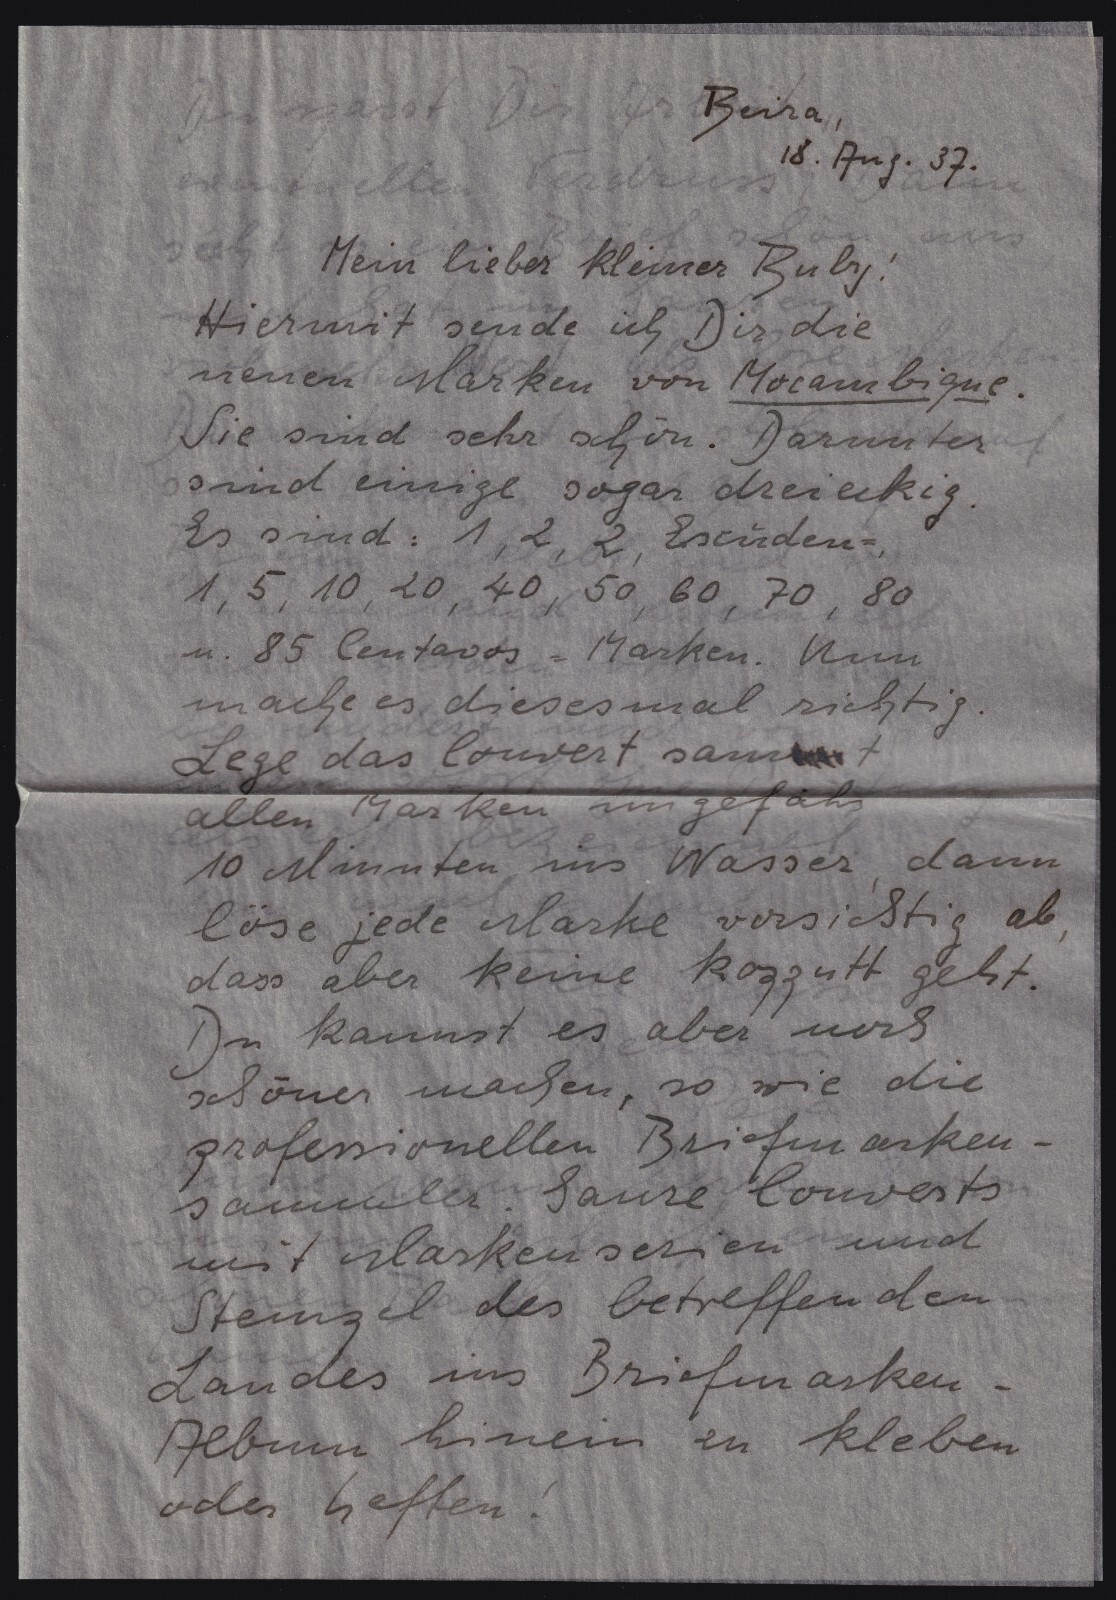 Beira,
18. Aug. 37.
Mein lieber kleiner Buby!
Hiermit sende ich Dir die
neuen Marken von Mocambique.
Sie sind sehr schön. Darunter
sind einige sogar dreieckig.
Es sind: 1, 2, 2, Escüden=,
1, 5, 10, 20, 40, 50, 60, 70, 80
u. 85 Centavos = Marken. Nun
mache es diesesmal richtig.
Lege das Couvert samt
allen Marken ungefähr
10 Minuten ins Wasser, dann
löse jede Marke vorsichtig ab,
dass aber keine kapputt geht.
Du kannst es aber noch
schöner machen, so wie die
professionellen Briefmarken-
sammler. Ganze Couverts
mit Markenserien und
Stempel des betreffenden
Landes ins Briefmarken-
Album hinein zu kleben
oder heften!